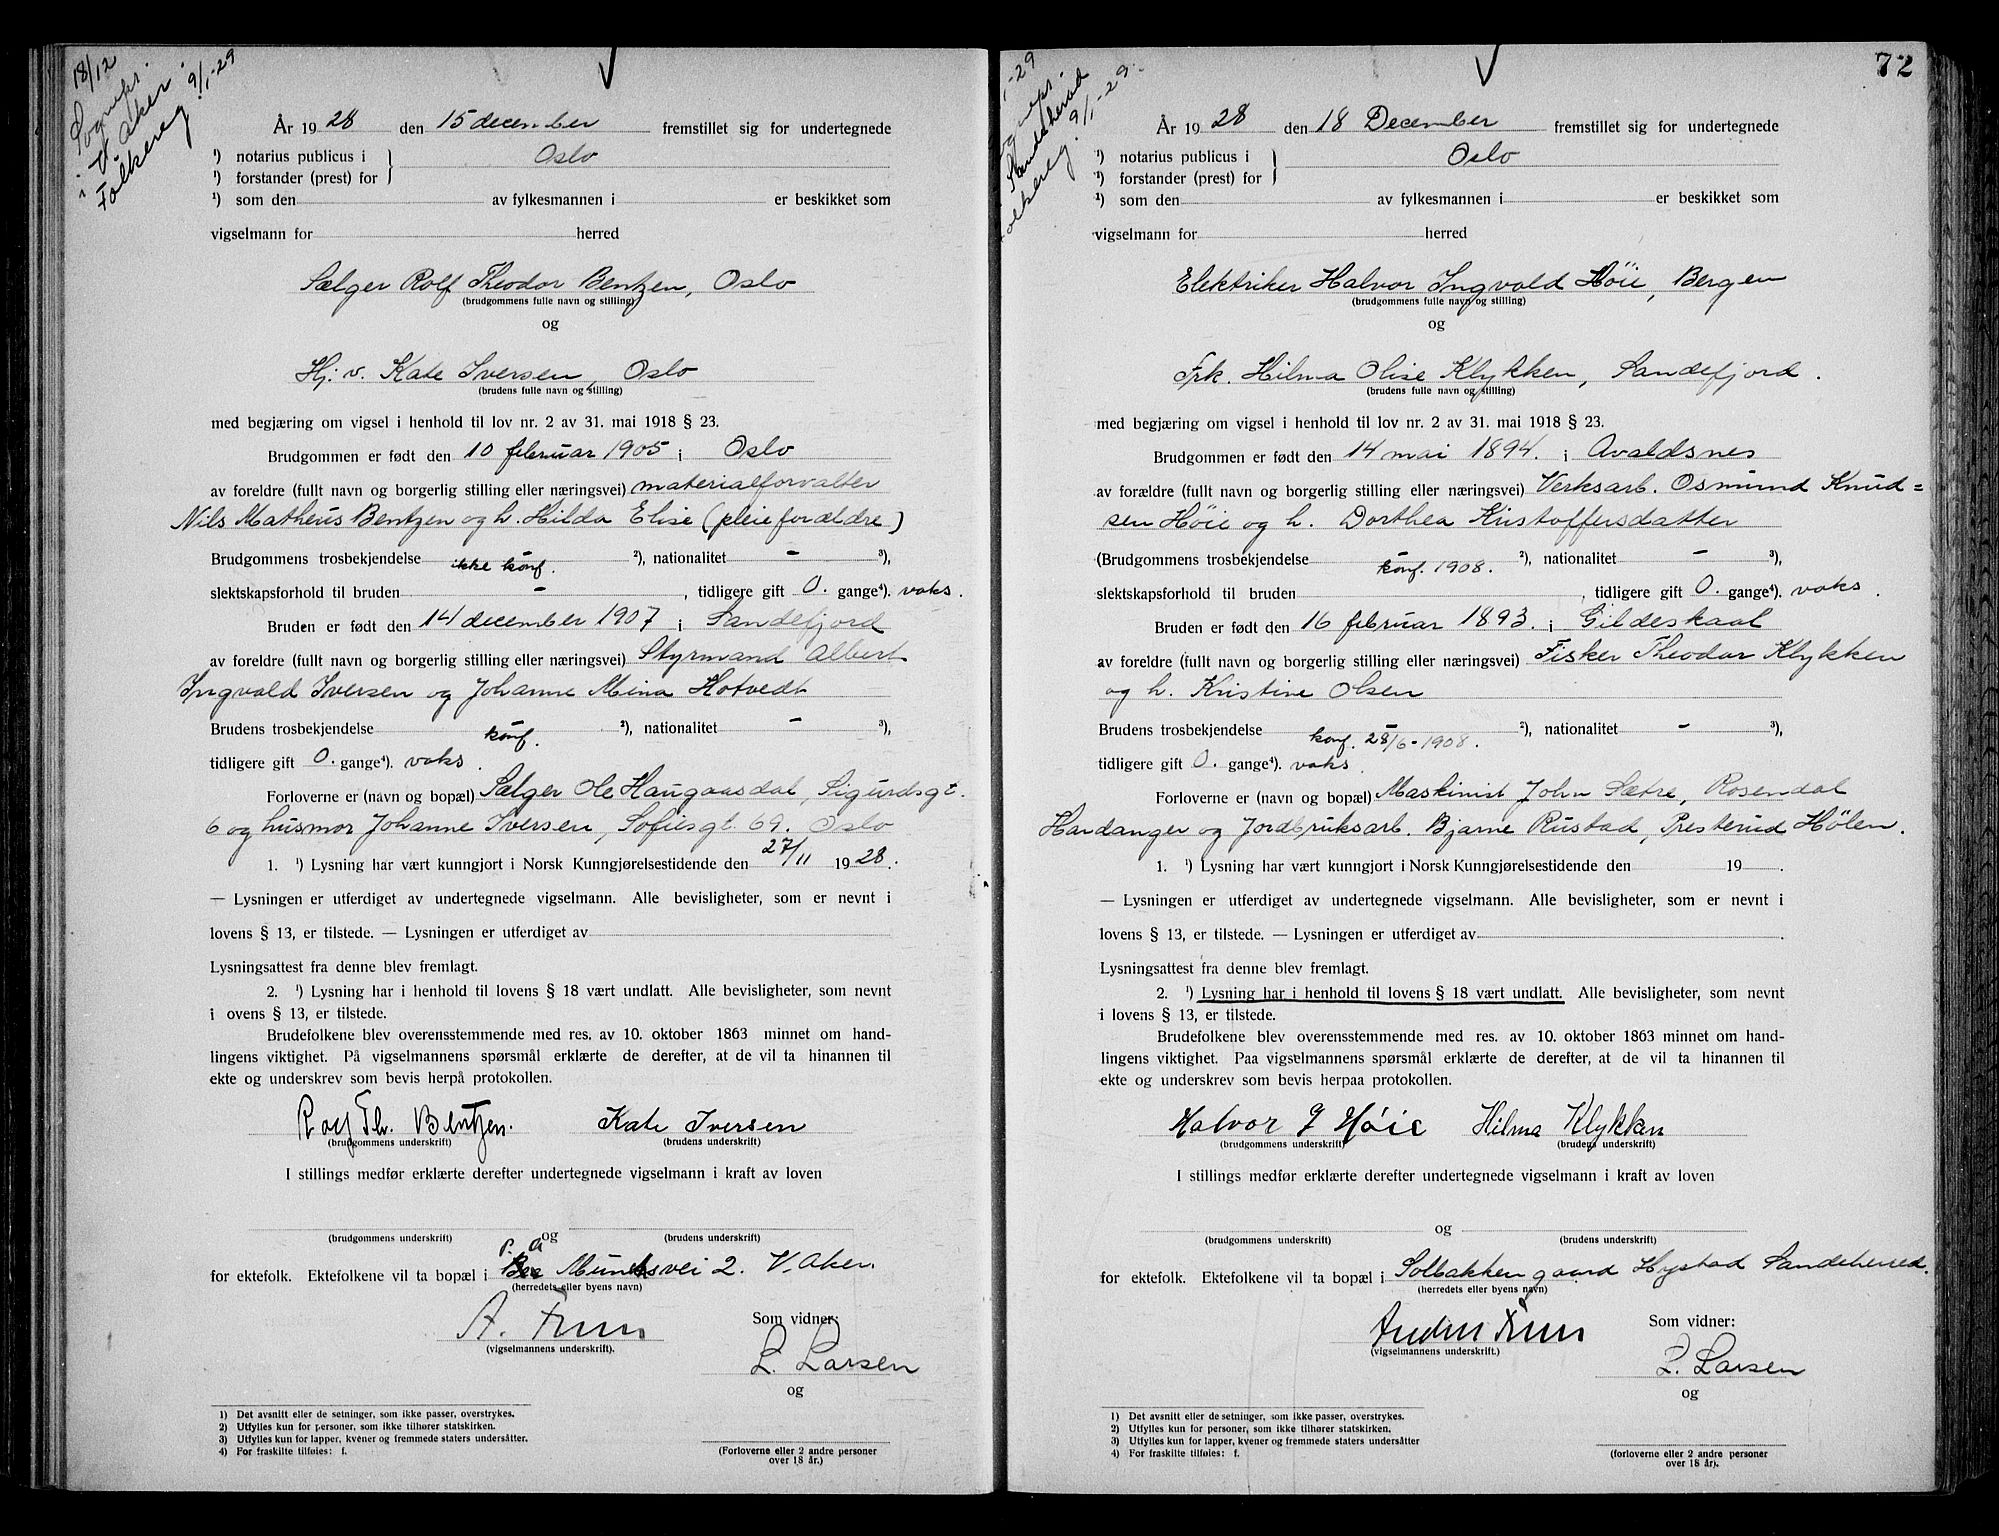 18/12
Sogneps.
i V. Aker.
Folkereg. 9/1-29
År 1928 den 15 december fremstillet sig for undertegnede
¹) notarius publicus i } Oslo
¹) forstander (prest) for
¹) som den av fylkesmannen i er beskikket som
vigselmann for herred
Sælger Rolf Theodor Bentzen, Oslo
(brudgommens fulle navn og stilling)
og
Hj. v. Kate Iversen, Oslo
(brudens fulle navn og stilling)
med begjæring om vigsel i henhold til lov nr. 2 av 31. mai 1918 § 23.
Brudgommen er født den 10 februar 1905 i Oslo
av foreldre (fullt navn og borgerlig stilling eller næringsvei) materialforvalter
Nils Matheus Bentzen og h. Hilda Elise (pleieforældre)
Brudgommens trosbekjendelse - ²), nationalitet - ³),
ikke konf.
slektskapsforhold til bruden - , tidligere gift 0. gange⁴). voks.
Bruden er født den 14 december 1907 i Sandefjord
av foreldre (fullt navn og borgerlig stilling eller næringsvei) Styrmand Albert
Ingvald Iversen og Johanne Mina Hotvedt
Brudens trosbekjendelse - ²), nationalitet - ³),
konf.
tidligere gift 0. gange⁴). voks.
Forloverne er (navn og bopæl) Sælger Ole Haugaasdal, Sigurdsgt.
6 og husmor Johanne Iversen, Sofiesgt. 69. Oslo
1. ¹) Lysning har vært kunngjort i Norsk Kunngjørelsestidende den 27/11 1928.
— Lysningen er utferdiget av undertegnede vigselmann. Alle bevisligheter, som er nevnt i
lovens § 13, er tilstede. — Lysningen er utferdiget av
Lysningsattest fra denne blev fremlagt.
2. ¹) Lysning har i henhold til lovens § 18 vært undlatt. Alle bevisligheter, som nevnt
i ovens § 13, er tilstede.
Brudefolkene blev overensstemmende med res. av 10. oktober 1863 minnet om hand-
lingens viktighet. På vigselmannens spørsmål erklærte de derefter, at de vil ta hinannen til
ekte og underskrev som bevis herpå protokollen.
Rolf Th. Bentzen. Kate Iversen
(brudgommens underskrift) (brudens underskrift)
I stillings medfør erklærte derefter undertegnede vigselmann i kraft av loven
og
(brudgommens underskrift) (brudens underskrift)
P. A
for ektefolk. Ektefolkene vil ta bopæl i Munchsvei 2. V. Aker.
(herredets eller byens navn)
A.
(vigselmannens underskrift).
Som vidner:
L. Larsen
og
1) Det avsnitt eller de setninger, som ikke passer, overstrykes.
2) Utfylles kun for personer, som ikke tilhører statskirken.
3) Utfylles kun for lapper, kvener og fremmede staters undersåtter.
4) For fraskilte tilføies: f.
(Forloverne eller 2 andre personer
over 18 år.)
72
-29
Sandeherad
9/1-29.
År 1928 den 18 December fremstillet sig for undertegnede
¹) notarius publicus i } Oslo
¹) forstander (prest) for
¹) som den av fylkesmannen i er beskikket som
vigselmann for herred
Elektriker Halvor Ingvald Høie, Bergen
(brudgommens fulle navn og stilling)
og
Frk. Hilma Olise Klykken, Sandefjord.
(brudens fulle navn og stilling)
med begjæring om vigsel i henhold til lov nr. 2 av 31. mai 1918 § 23.
Brudgommen er født den 14 mai 1894. i Avaldsnes
av forældre (fullt navn og borgerlig stilling eller næringsvei) Verksarb. Osmund Knud=
sen Høie og h. Dorthea Kristoffersdatter
(Brudgommens trosbekjendelse - ²), nationalitet - ³),
konf. 1908.
slektskapsforhold til bruden , tidligere gift 0. gange⁴). voks.
Bruden er født den 16 februar 1893. i Gildeskaal
av foreldre (fullt navn og borgerlig stilling eller næringsvei) Fisker Theodor Klykken
og h. Kristine Olsen
Brudens trosbekjendelse - ²), nationalitet - ³),
konf. 28/6-1908.
tidligere gift 0. gange⁴). voks.
Forloverne er (navn og bopæl) Maskinist John Sætre, Rosendal
Hardanger og Jordbruksarb. Bjarne Rustad, Presterud Hølen.
1. ¹) Lysning har vært kunngjort i Norsk Kunngjørelsestidende den 19 .
— Lysningen er utferdiget av undertegnede vigselmann. Alle bevisligheter, som er nevnt i
lovens § 13, er tilstede. — Lysningen er utferdiget av
Lysningsattest fra denne blev fremlagt.
2. ¹) Lysning har i henhold til lovens § 18 vært undlatt. Alle bevisligheter, som nevnt
i lovens § 13, er tilstede.
Brudefolkene blev overensstemmende med res. av 10. oktober 1863 minnet om hand-
lingens viktighet. Paa vigselmannens spørsmål erklærte de derefter, at de vil ta hinannen til
ekte og underskrev som bevis herpaa protokollen.
Halvor I Høie Hilma Klykken
(brudgommens underskrift) (brudens underskrift)
I stillings medfør erklærte derefter undertegnede vigselmann i kraft av loven
og
(brudgommens underskrift) (brudens underskrift)
for ektefolk. Ektefolkene vil ta bopæl i Solbakken gaard Hystad Sandeherred.
(herredets eller byens navn)
(vigselmannens underskrift.)
Som vidner:
L. Larsen
og
1) Det avsnitt eller de setninger, som ikke passer, overstrykes.
2) Utfylles kun for personer, som ikke tilhører statskirken.
3) Utfylles kun for lapper, kvener og fremmede staters undersåtter
4) For fraskilte tilføies: f.
(forloverne eller 2 andre personer
over 18 år).